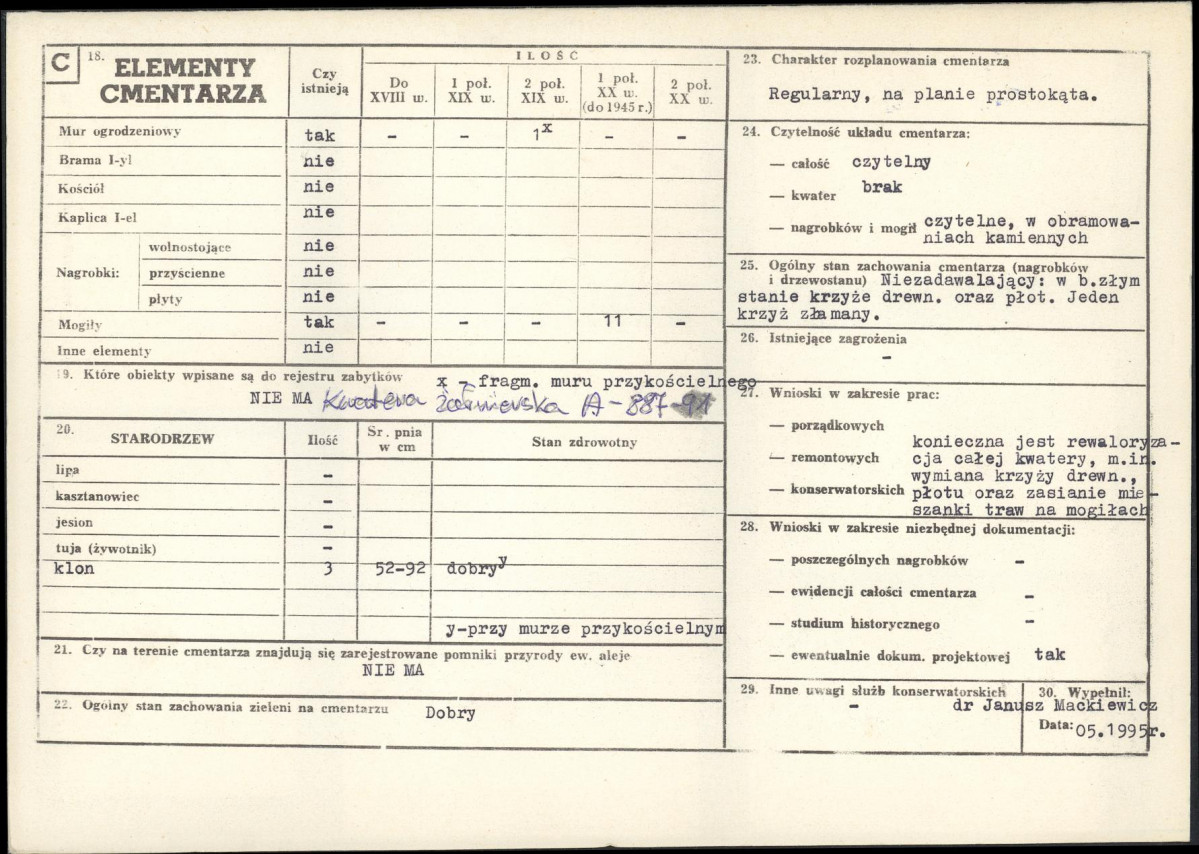 C 18. ELEMENTY CMENTARZA
Czy istnieją
ILOŚĆ
Do XVIII w.
1 poł. XIX w.
2 poł. XIX w.
1 poł. XX w. (do 1945 r.)
2 poł. XX w.
Mur ogrodzeniowy tak - - 1x - -
Brama I-yl nie
Kościół nie
Kaplica I-el nie
Nagrobki:
wolnostojące nie
przyścienne nie
płyty nie
Mogiły tak - - - 11 -
Inne elementy nie
19. Które obiekty wpisane są do rejestru zabytków x - fragm. muru przykościelnego
NIE MA Kwatera żołnierska A-887
20. STARODRZEW
Ilość
Sr. pnia w cm
Stan zdrowotny
lipa -
kasztanowiec -
jesion -
tuja (żywotnik) -
klon 3 52-92 dobry y
y-przy murze przykościelnym
21. Czy na terenie cmentarza znajdują się zarejestrowane pomniki przyrody ew. aleje
NIE MA
22. Ogólny stan zachowania zieleni na cmentarzu Dobry
23. Charakter rozplanowania cmentarza
Regularny, na planie prostokąta.
24. Czytelność układu cmentarza:
— całość czytelny
— kwater brak
— nagrobków i mogił czytelne, w obramowa-
niach kamiennych
25. Ogólny stan zachowania cmentarza (nagrobków
i drzewostanu) Niezadawalający: w b.złym
stanie krzyże drewn. oraz płot. Jeden
krzyż złamany.
26. Istniejące zagrożenia
-
27. Wnioski w zakresie prac:
— porządkowych
konieczna jest rewaloryza-
— remontowych cja całej kwatery, m.in.
wymiana krzyży drewn.,
— konserwatorskich płotu oraz zasianie mie-
szanki traw na mogiłach
28. Wnioski w zakresie niezbędnej dokumentacji:
— poszczególnych nagrobków -
— ewidencji całości cmentarza -
— studium historycznego -
— ewentualnie dokum. projektowej tak
29. Inne uwagi służb konserwatorskich
-
30. Wypełnił:
dr Janusz Mackiewicz
Data: 05.1995r.